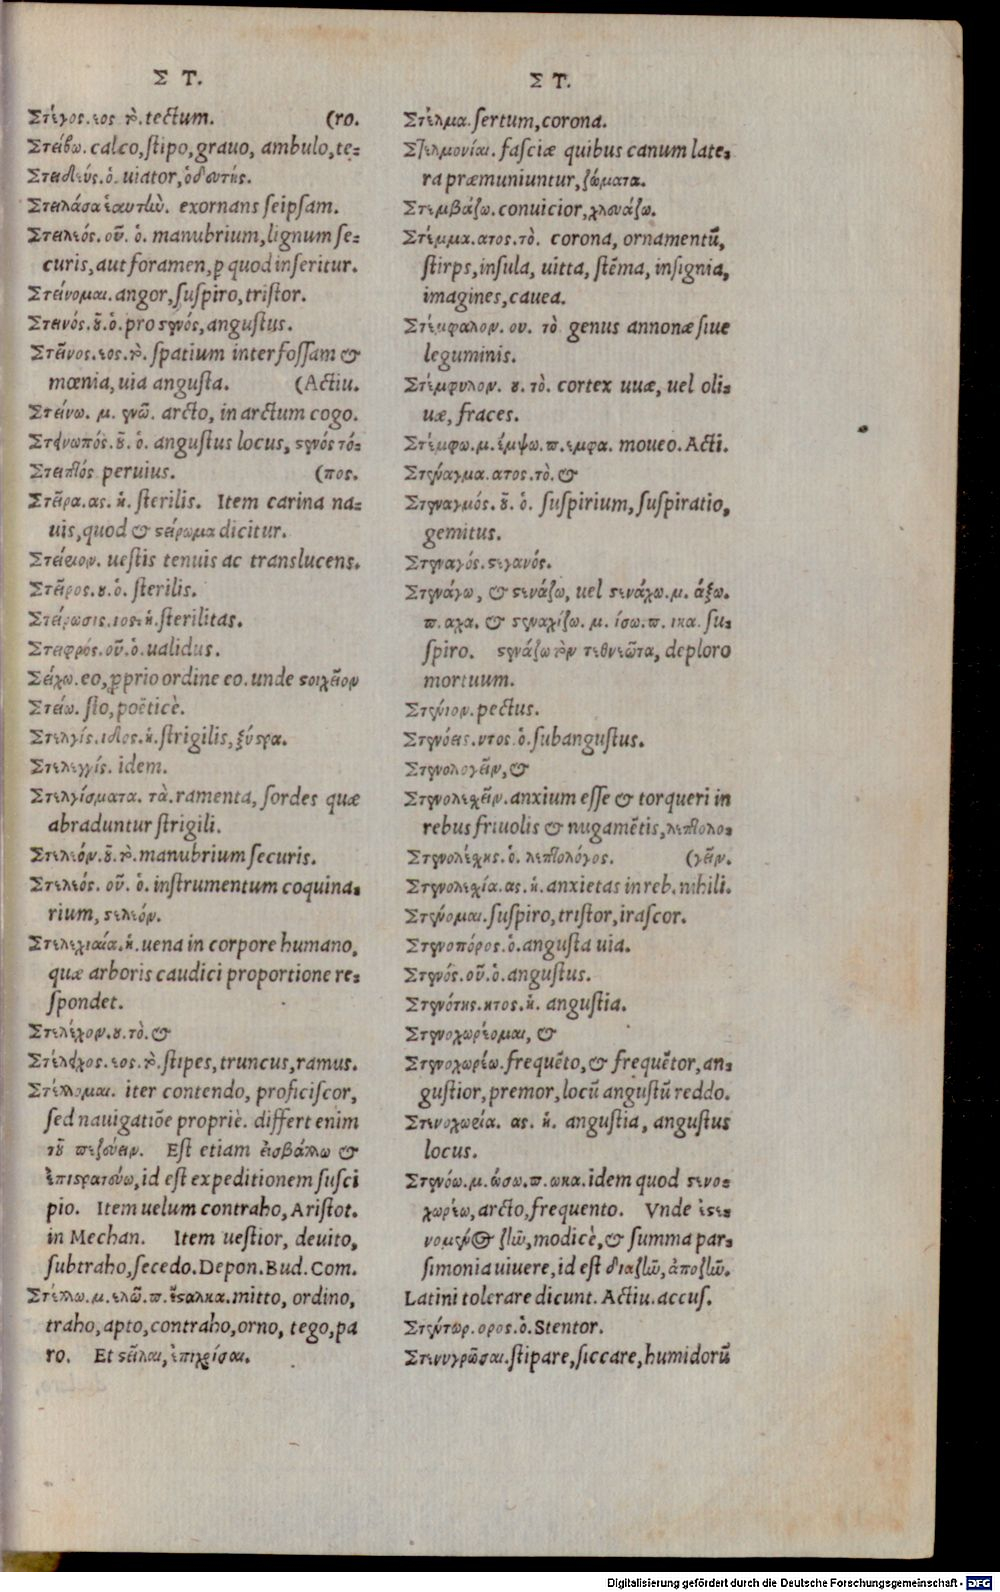 Σ Τ.
Στέγος. εος τὸ. tectum. (ro.
Στείβω. calco, stipo, grauo, ambulo, te=
Στειδιεύς. ὁ. uiator, ὁδευτής.
Στειλάσα ἑαυτὴν. exornans seipsam.
Στειλειός. οῦ. ὁ. manubrium, lignum se=
curis, aut foramen, ꝑ quod inseritur.
Στείνομαι. angor, suspiro, tristor.
Στεινός. οῦ. ὁ. pro στενός, angustus.
Στεῖνος. εος. τὸ. spatium inter fossam &
mœnia, uia angusta. (Actiu.
Στείνω. μ. ενῶ. arcto, in arctum cogo.
Στεινωπός. οῦ. ὁ. angustus locus, στενός τό=
Στειπτός peruius. (πος.
Στεῖρα. ας. ἡ. sterilis. Item carina na=
uis, quod & στείρωμα dicitur.
Στείριον. uestis tenuis ac translucens.
Στεῖρος. ου. ὁ. sterilis.
Στείρωσις. ιος. ἡ. sterilitas.
Στειφρός. οῦ. ὁ. ualidus.
Στείχω. eo, ꝓprio ordine eo. unde στοιχεῖον
Στείω. sto, poëticè.
Στελγίς. ιδος. ἡ. strigilis, ξύστρα.
Στελεγγίς. idem.
Στελγίσματα. τὰ. ramenta, sordes quæ
abraduntur strigili.
Στελεόν. οῦ. τὸ. manubrium securis.
Στελεός. οῦ. ὁ. instrumentum coquina=
rium, στελεόν.
Στελεχιαία. ἡ. uena in corpore humano,
quæ arboris caudici proportione re=
spondet.
Στελέχον. ου. τὸ. &
Στέλεχος. εος. τὸ. stipes, truncus, ramus.
Στέλλομαι. iter contendo, proficiscor,
sed nauigatiōe propriè. differt enim
τοῦ πεζεύειν. Est etiam εἰσβάλλω &
ἐπιστρατεύω, id est expeditionem susci
pio. Item uelum contraho, Aristot.
in Mechan. Item uestior, deuito,
subtraho, secedo. Depon. Bud. Com.
Στέλλω. μ. ελῶ. π. ἔσταλκα. mitto, ordino,
traho, apto, contraho, orno, tego, pa
ro. Et στεῖλαι, ἐπιχρίσαι.
Σ Τ.
Στέλμα. sertum, corona.
Στελμονίαι. fasciæ quibus canum late=
ra præmuniuntur, ζώματα.
Στεμβάζω. conuicior, χλευάζω.
Στέμμα. ατος. τὸ. corona, ornamentū,
stirps, insula, uitta, stēma, insignia,
imagines, cauea.
Στέμφαλον. ου. τὸ genus annonæ siue
leguminis.
Στέμφυλον. ου. τὸ. cortex uuæ, uel oli=
uæ, fraces.
Στέμφω. μ. έμψω. π. εμφα. moueo. Acti.
Στέναγμα. ατος. τὸ. &
Στεναγμός. οῦ. ὁ. suspirium, suspiratio,
gemitus.
Στεναγός. στεγανός.
Στενάγω, & στενάζω, uel στενάχω. μ. άξω.
π. αχα. & στεναχίζω. μ. ίσω. π. ικα. su=
spiro. στενάζω τὸν τεθνεῶτα, deploro
mortuum.
Στένιον. pectus.
Στενόεις. ντος. ὁ. subangustus.
Στενολογεῖν, &
Στενολεχεῖν. anxium esse & torqueri in
rebus friuolis & nugamētis, λεπτολο=
Στενολέχης. ὁ. λεπτολόγος. (γεῖν.
Στενολεχία. ας. ἡ. anxietas in reb. nihili.
Στένομαι. suspiro, tristor, irascor.
Στενοπόρος. ὁ. angusta uia.
Στενός. οῦ. ὁ. angustus.
Στενότης. ητος. ἡ. angustia.
Στενοχωρέομαι, &
Στενοχωρέω. frequēto, & frequētor, an=
gustior, premor, locū angustū reddo.
Στενοχωρία. ας. ἡ. angustia, angustus
locus.
Στενόω. μ. ώσω. π. ωκα. idem quod στενο=
χωρέω, arcto, frequento. Vnde ἐστε=
νομένως ζῶ, modicè, & summa par=
simonia uiuere, id est διαζῶ, ἀποζῶ.
Latini tolerare dicunt. Actiu. accus.
Στέντωρ. ορος. ὁ. Stentor.
Στενυγρῶσαι. stipare, siccare, humidorū
Digitalisierung gefördert durch die Deutsche Forschungsgemeinschaft - DFG